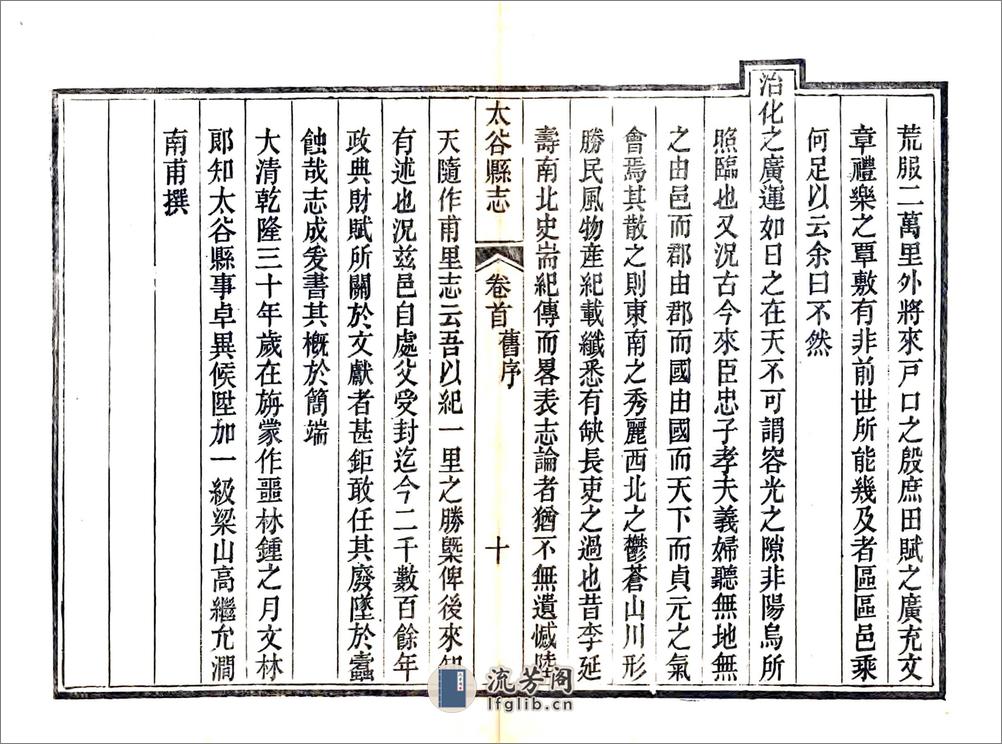 荒服二萬里外將來戸口之殷庶田賦之廣充文
章禮樂之覃敷有非前世所能幾及者區區邑乘
何足以云余曰不然
治化之廣運如日之在天不可謂容光之隙非陽烏所
照臨也又況古今來臣忠子孝夫義婦聽無地無
之由邑而郡由郡而國由國而天下而貞元之氣
會焉其散之則東南之秀麗西北之鬱蒼山川形
勝民風物産紀載纖悉有缺長吏之過也昔李延
壽南北史耑紀傳而畧表志論者猶不無遺憾陸
太谷縣志 卷首 舊序 十
天隨作甫里志云吾以紀一里之勝槩俾後來知
有述也況兹邑自處父受封迄今二千數百餘年
政典財賦所關於文獻者甚鉅敢任其廢墜於蠧
蝕哉志成爰書其概於簡端
大清乾隆三十年歲在旃蒙作噩林鍾之月文林
郎知太谷縣事卓異候陞加一級梁山高繼允澗
南甫撰
流芳阁
lfglib.cn